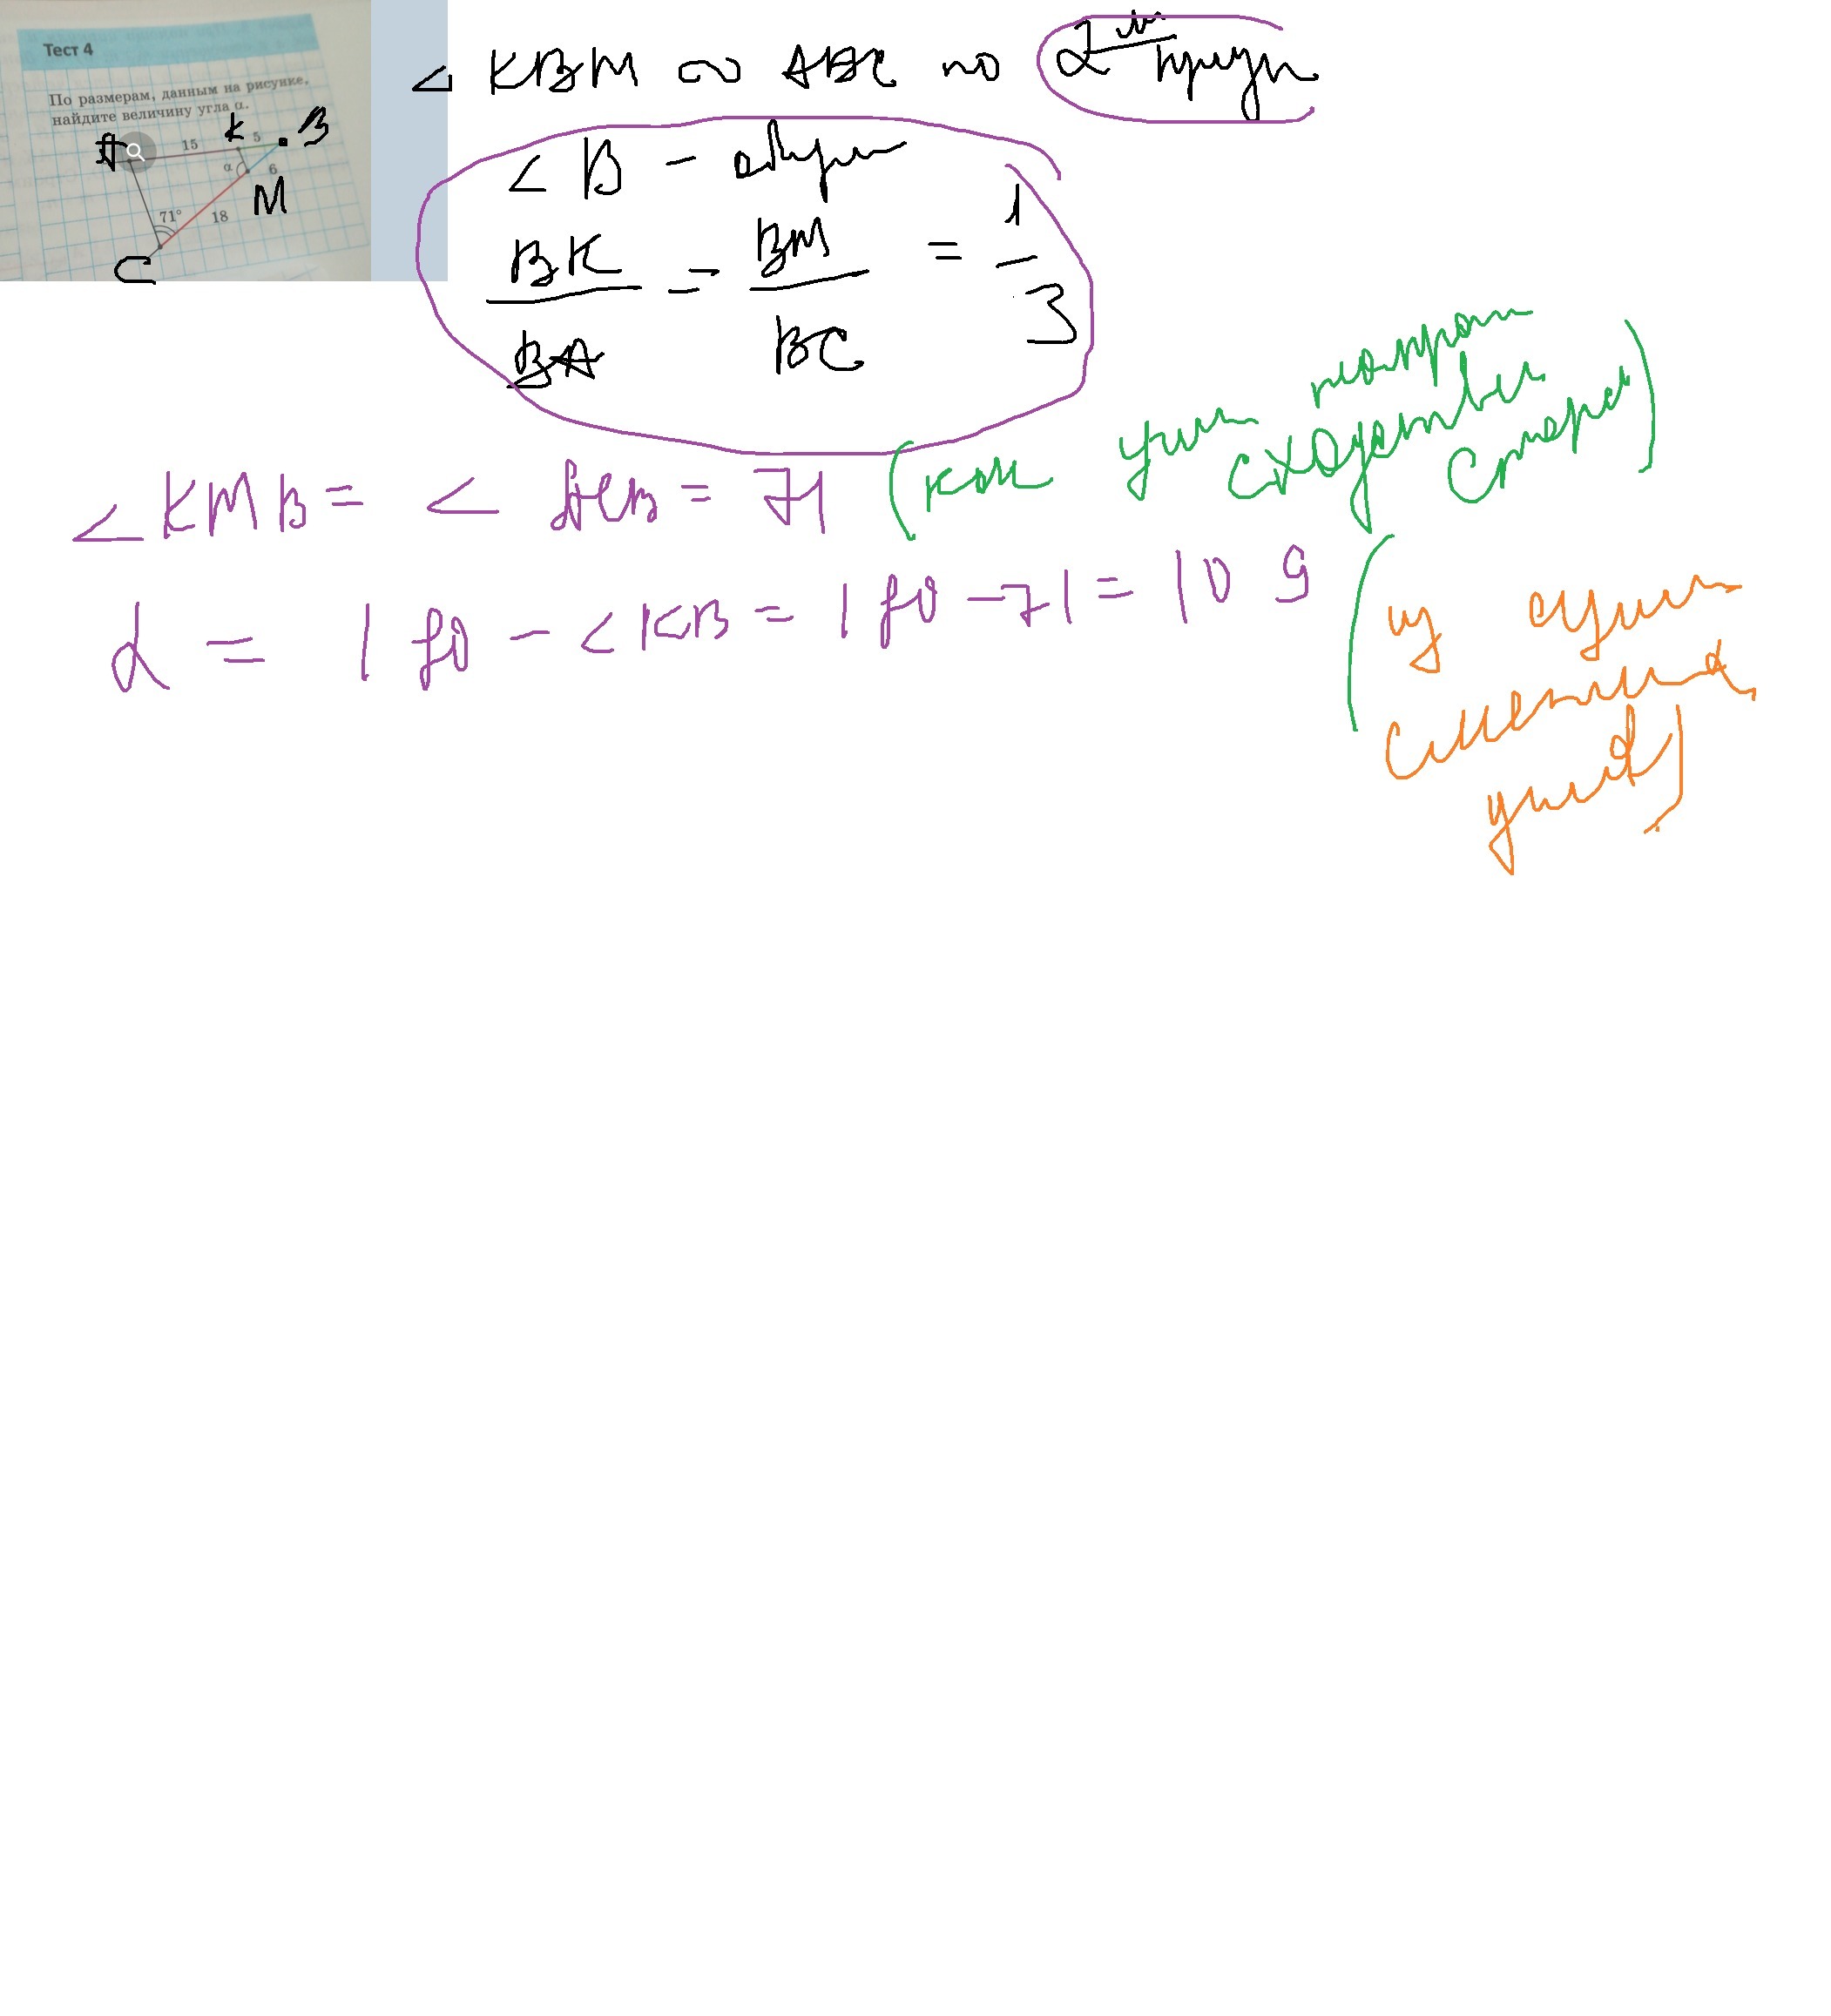 Тест 4
По размерам, данным на рисунке,
найдите величину угла α.
A 15 K 5 B
α 6
M
71° 18
C
⊿ KBM ∾ ABC по 2 м призн
< B – общ
BK = BM = 1
BA BC 3
< KMB = < ACB = 71 (как углы напрот
сходств
сторон)
α = 180 – < KB = 180 – 71 = 109
(из
смежных
углов)